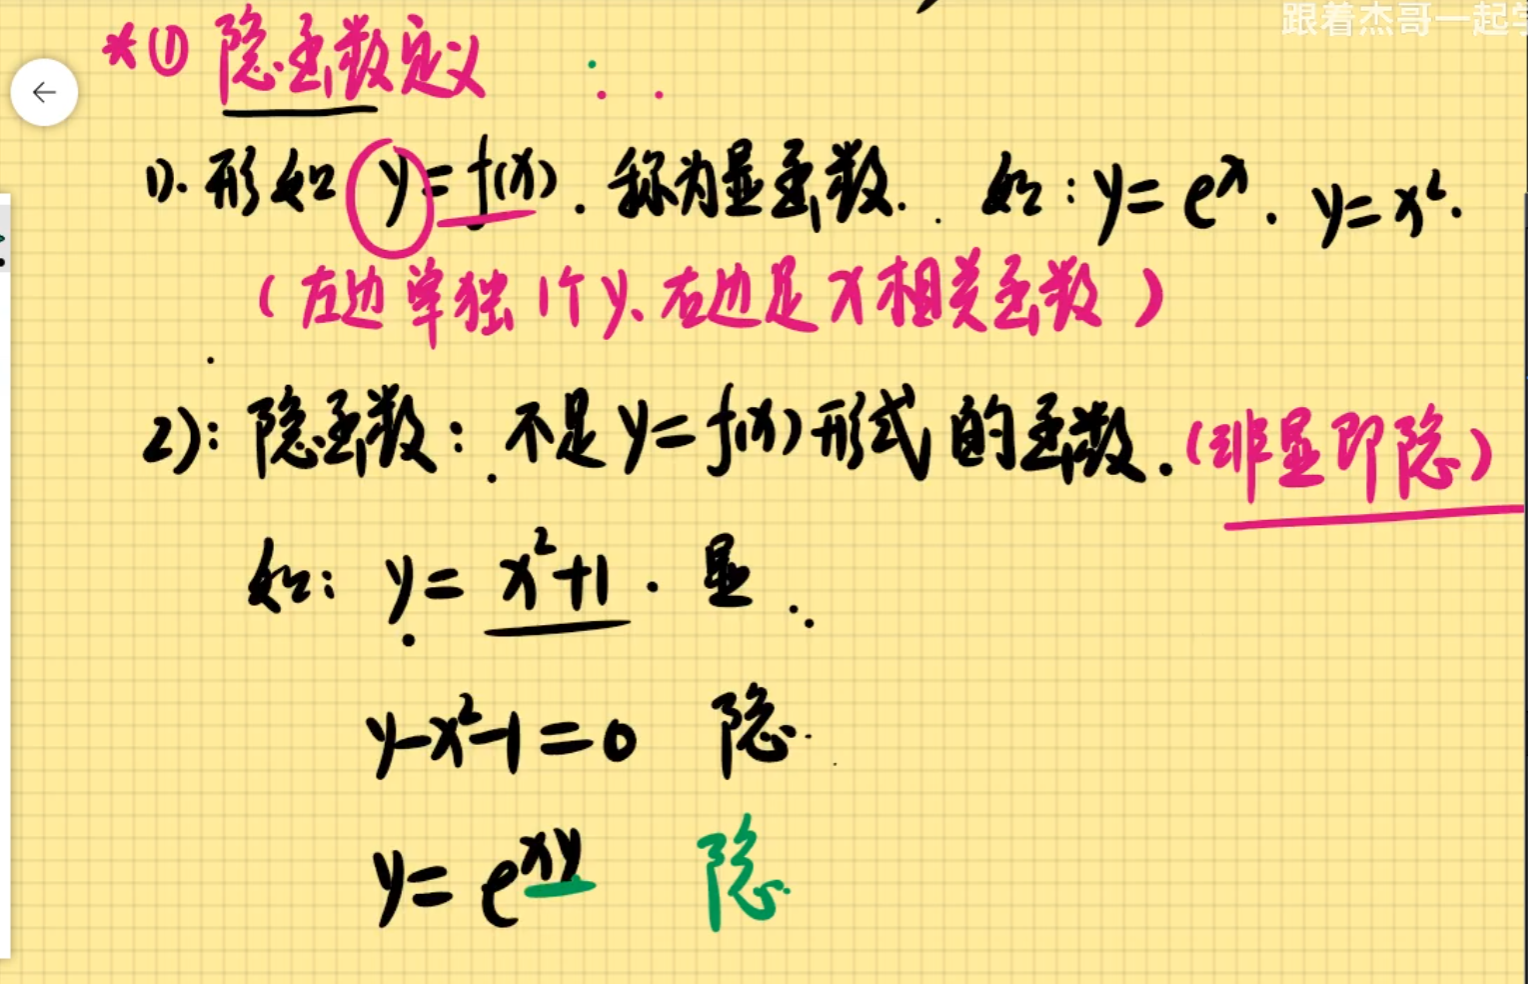 跟着杰哥一起学
*① 隐函数定义
1). 形如 y=f(x). 称为显函数. 如:y=eˣ. y=x².
(左边单独1个y、右边是x相关函数)
2): 隐函数: 不是y=f(x)形式的函数.(非显即隐)
如: y= x²+1. 显
y-x²-1=0 隐
y= e^xy 隐